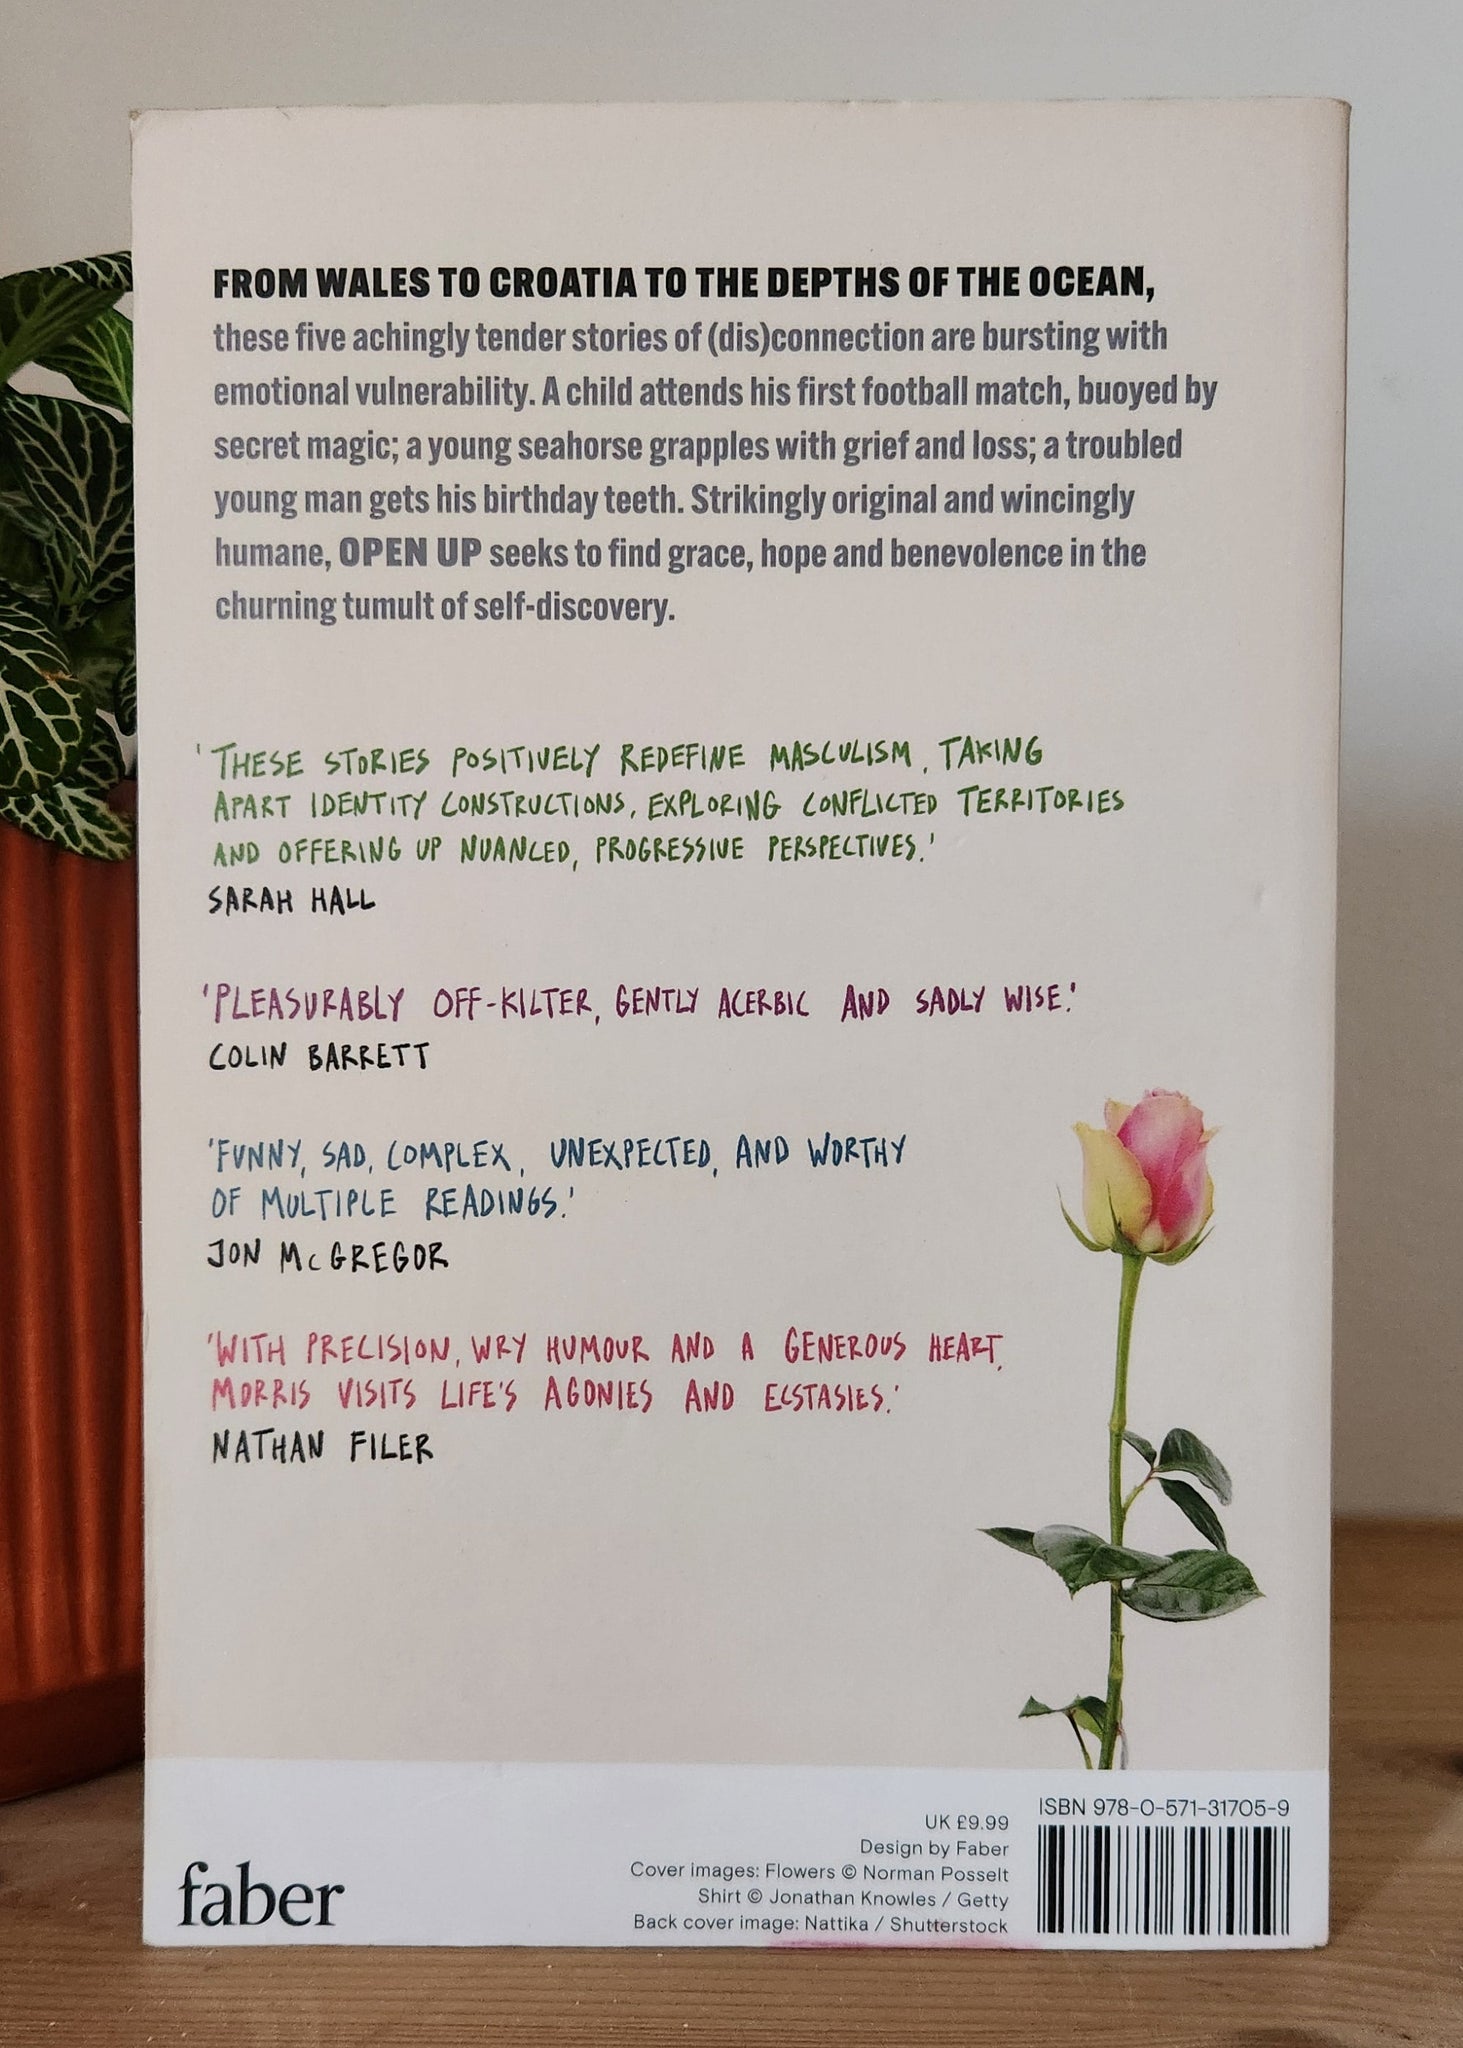 FROM WALES TO CROATIA TO THE DEPTHS OF THE OCEAN,
these five achingly tender stories of (dis)connection are bursting with
emotional vulnerability. A child attends his first football match, buoyed by
secret magic; a young seahorse grapples with grief and loss; a troubled
young man gets his birthday teeth. Strikingly original and wincingly
humane, OPEN UP seeks to find grace, hope and benevolence in the
churning tumult of self-discovery.
'THESE STORIES POSITIVELY REDEFINE MASCULISM, TAKING
APART IDENTITY CONSTRUCTIONS, EXPLORING CONFLICTED TERRITORIES
AND OFFERING UP NUANCED, PROGRESSIVE PERSPECTIVES.'
SARAH HALL
'PLEASURABLY OFF-KILTER, GENTLY ACERBIC AND SADLY WISE.'
COLIN BARRETT
'FUNNY, SAD, COMPLEX, UNEXPECTED, AND WORTHY
OF MULTIPLE READINGS.'
JON McGREGOR
'WITH PRECISION, WRY HUMOUR AND A GENEROUS HEART,
MORRIS VISITS LIFE'S AGONIES AND ECSTASIES.'
NATHAN FILER
faber
UK £9.99
Design by Faber
Cover images: Flowers © Norman Posselt
Shirt © Jonathan Knowles / Getty
Back cover image: Nattika / Shutterstock
ISBN 978-0-571-31705-9